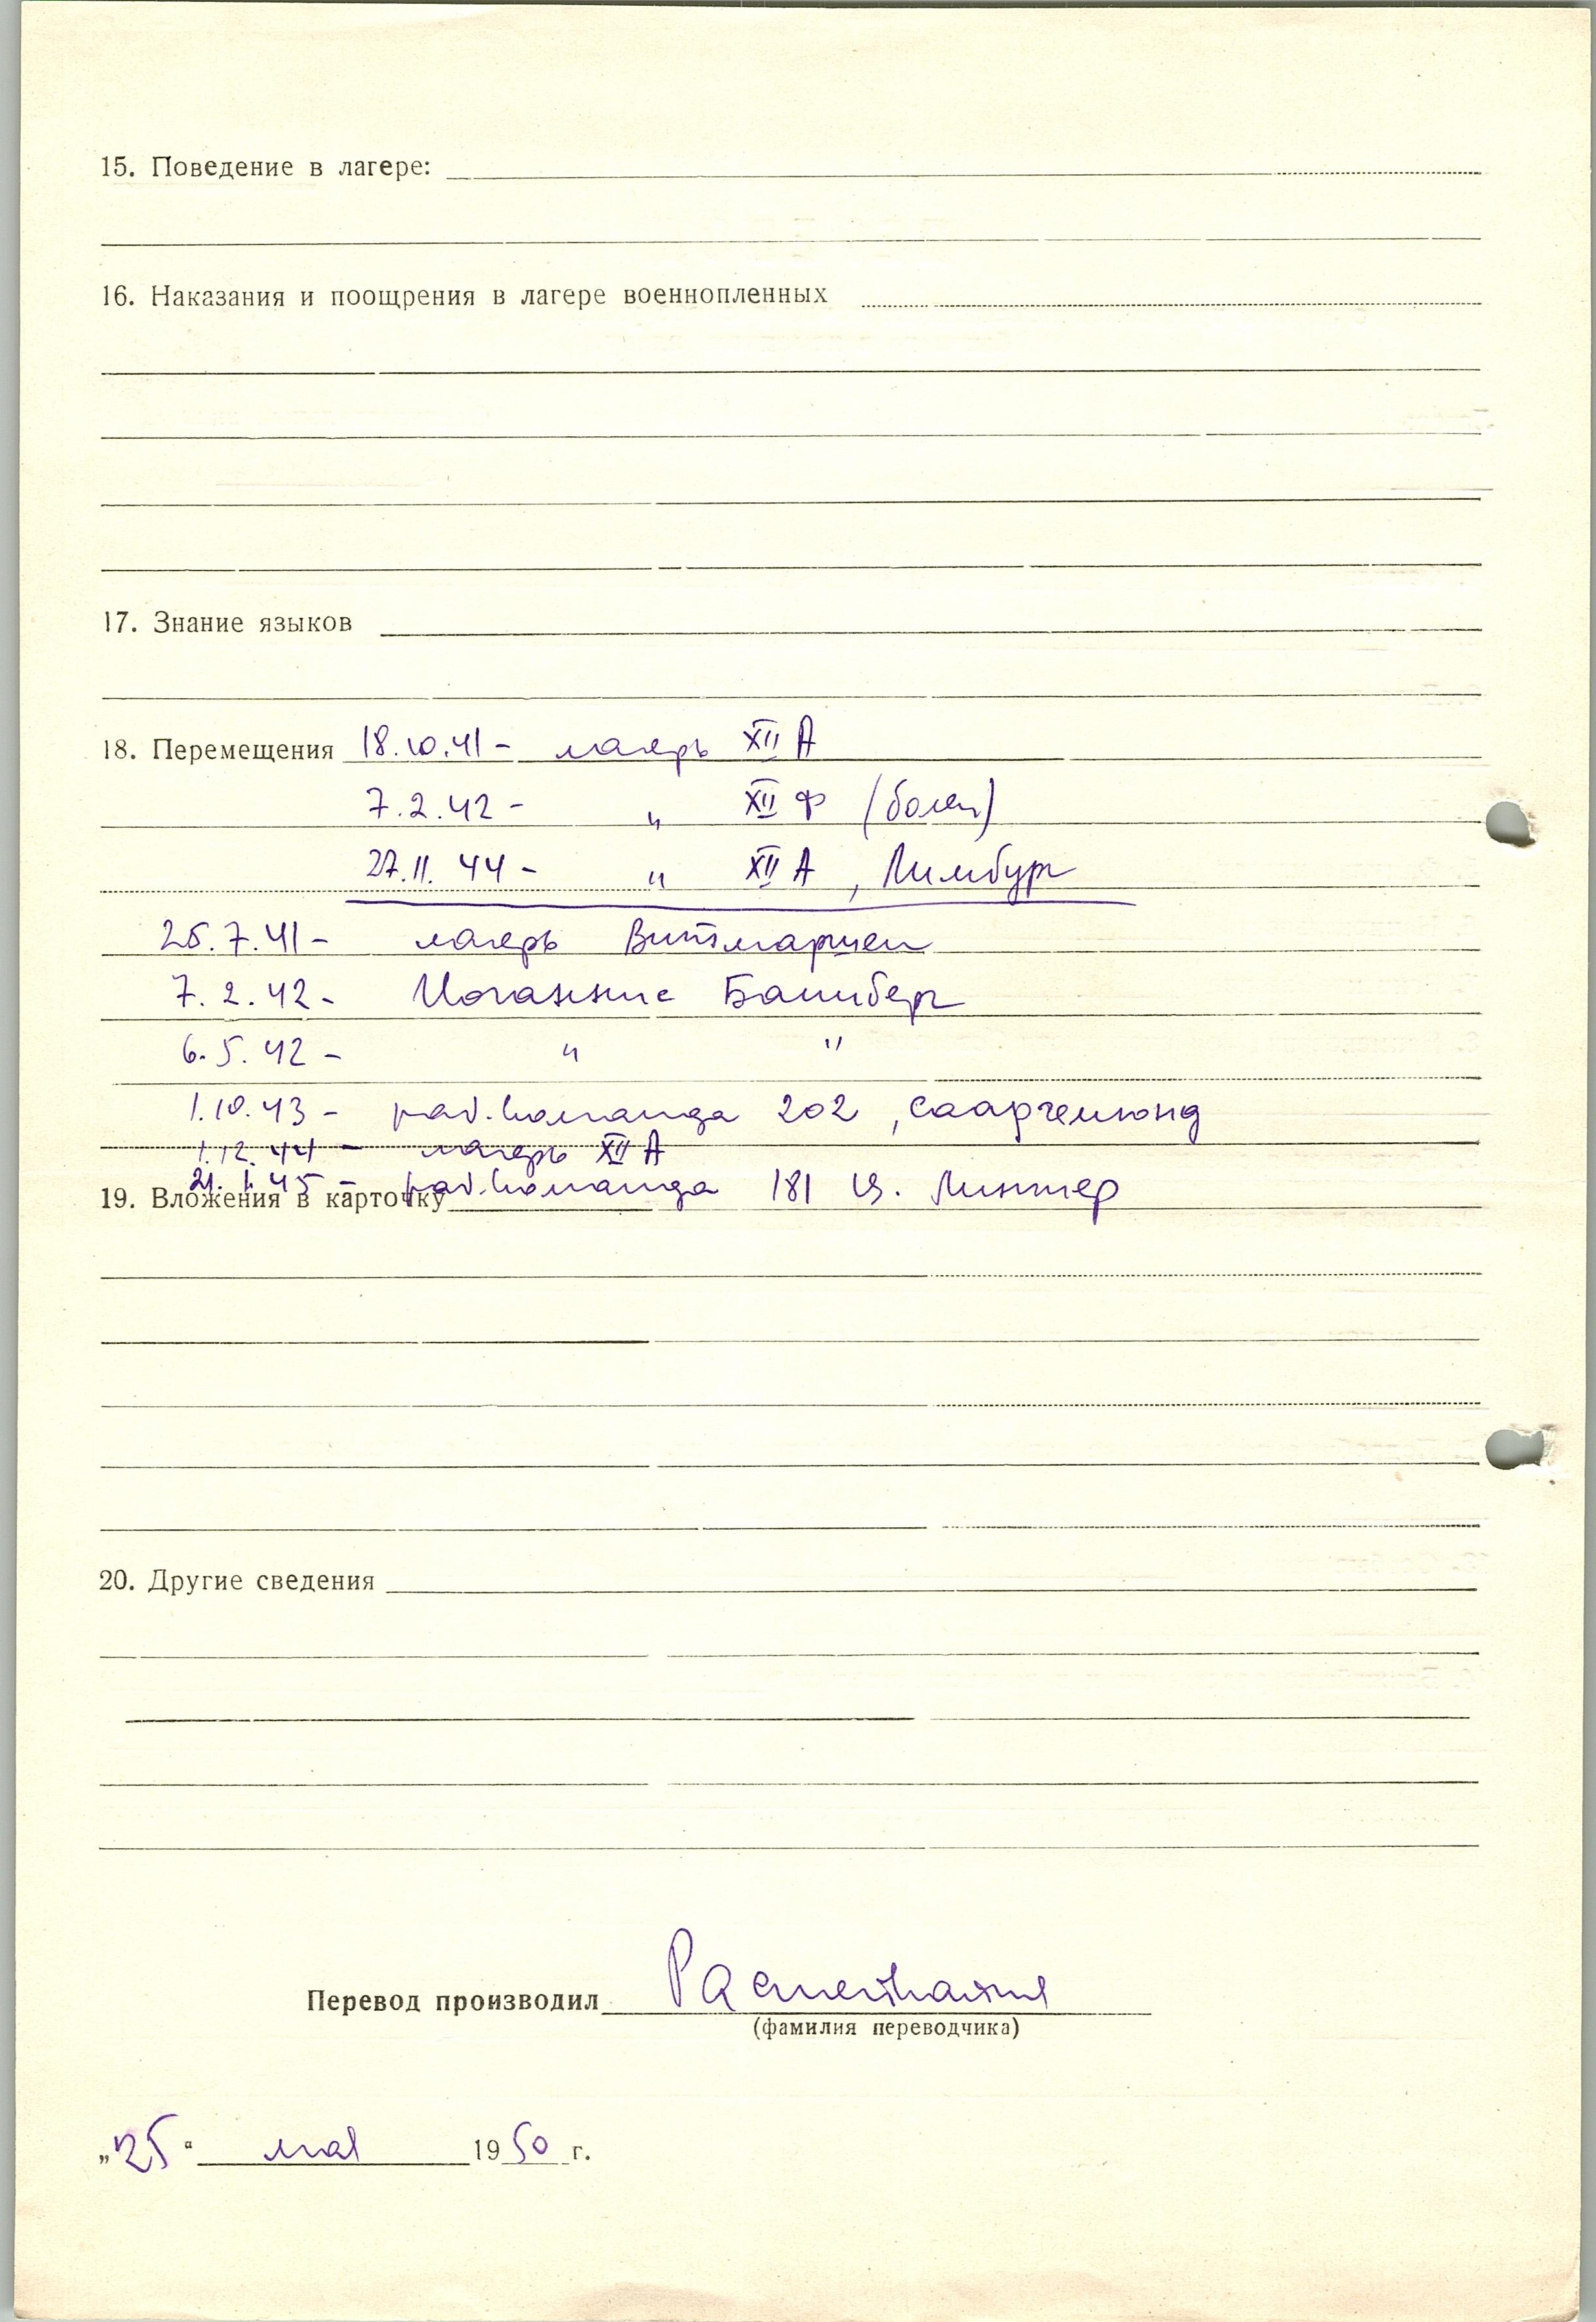 15. Поведение в лагере:
16. Наказания и поощрения в лагере военнопленных
17. Знание языков
18. Перемещения 18.10.41 - лагерь XII А
7.2.42 - " XII Ф (болен)
27.11.44 - " XII А, Лимбург
25.7.41 - лагерь Витмаршен
7.2.42 - Иоганнис Банберг
6.5.42 - " "
1.10.43 - раб. команда 202, Сааргемюнд
1.12.44 - лагерь XII А
21.1.45 - раб. команда 181
19. Вложения в карточку
20. Другие сведения
Перевод производил
(фамилия переводчика)
„25“ мая 1950 г.